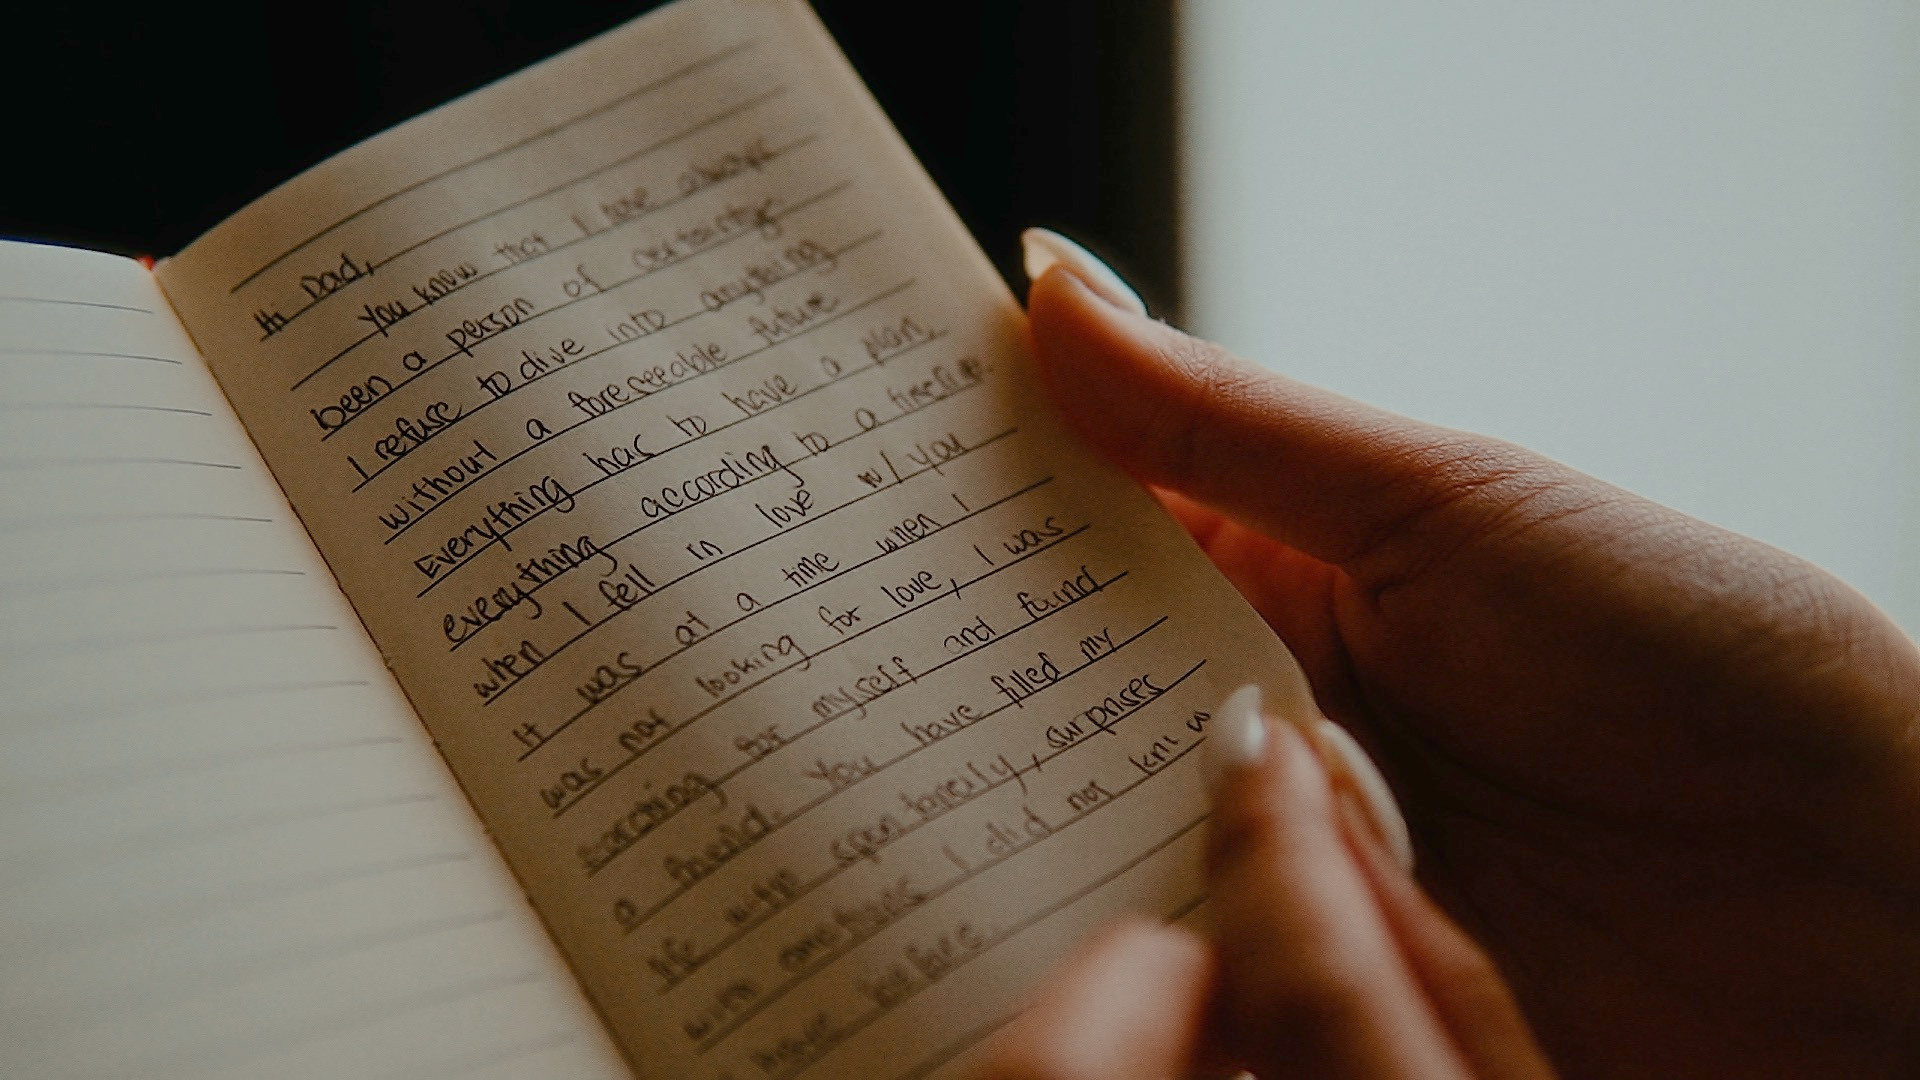 Hi Dad,
You know that I have always
been a person of certainty.
I refuse to dive into anything
without a foreseeable future
Everything has to have a plan,
everything according to a timeline.
when I fell in love w/ you
it was at a time when I
was not looking for love, I was
searching for myself and found
a friend. You have filled my
life with spontaneity, surprises
with emotions I did not know
before.